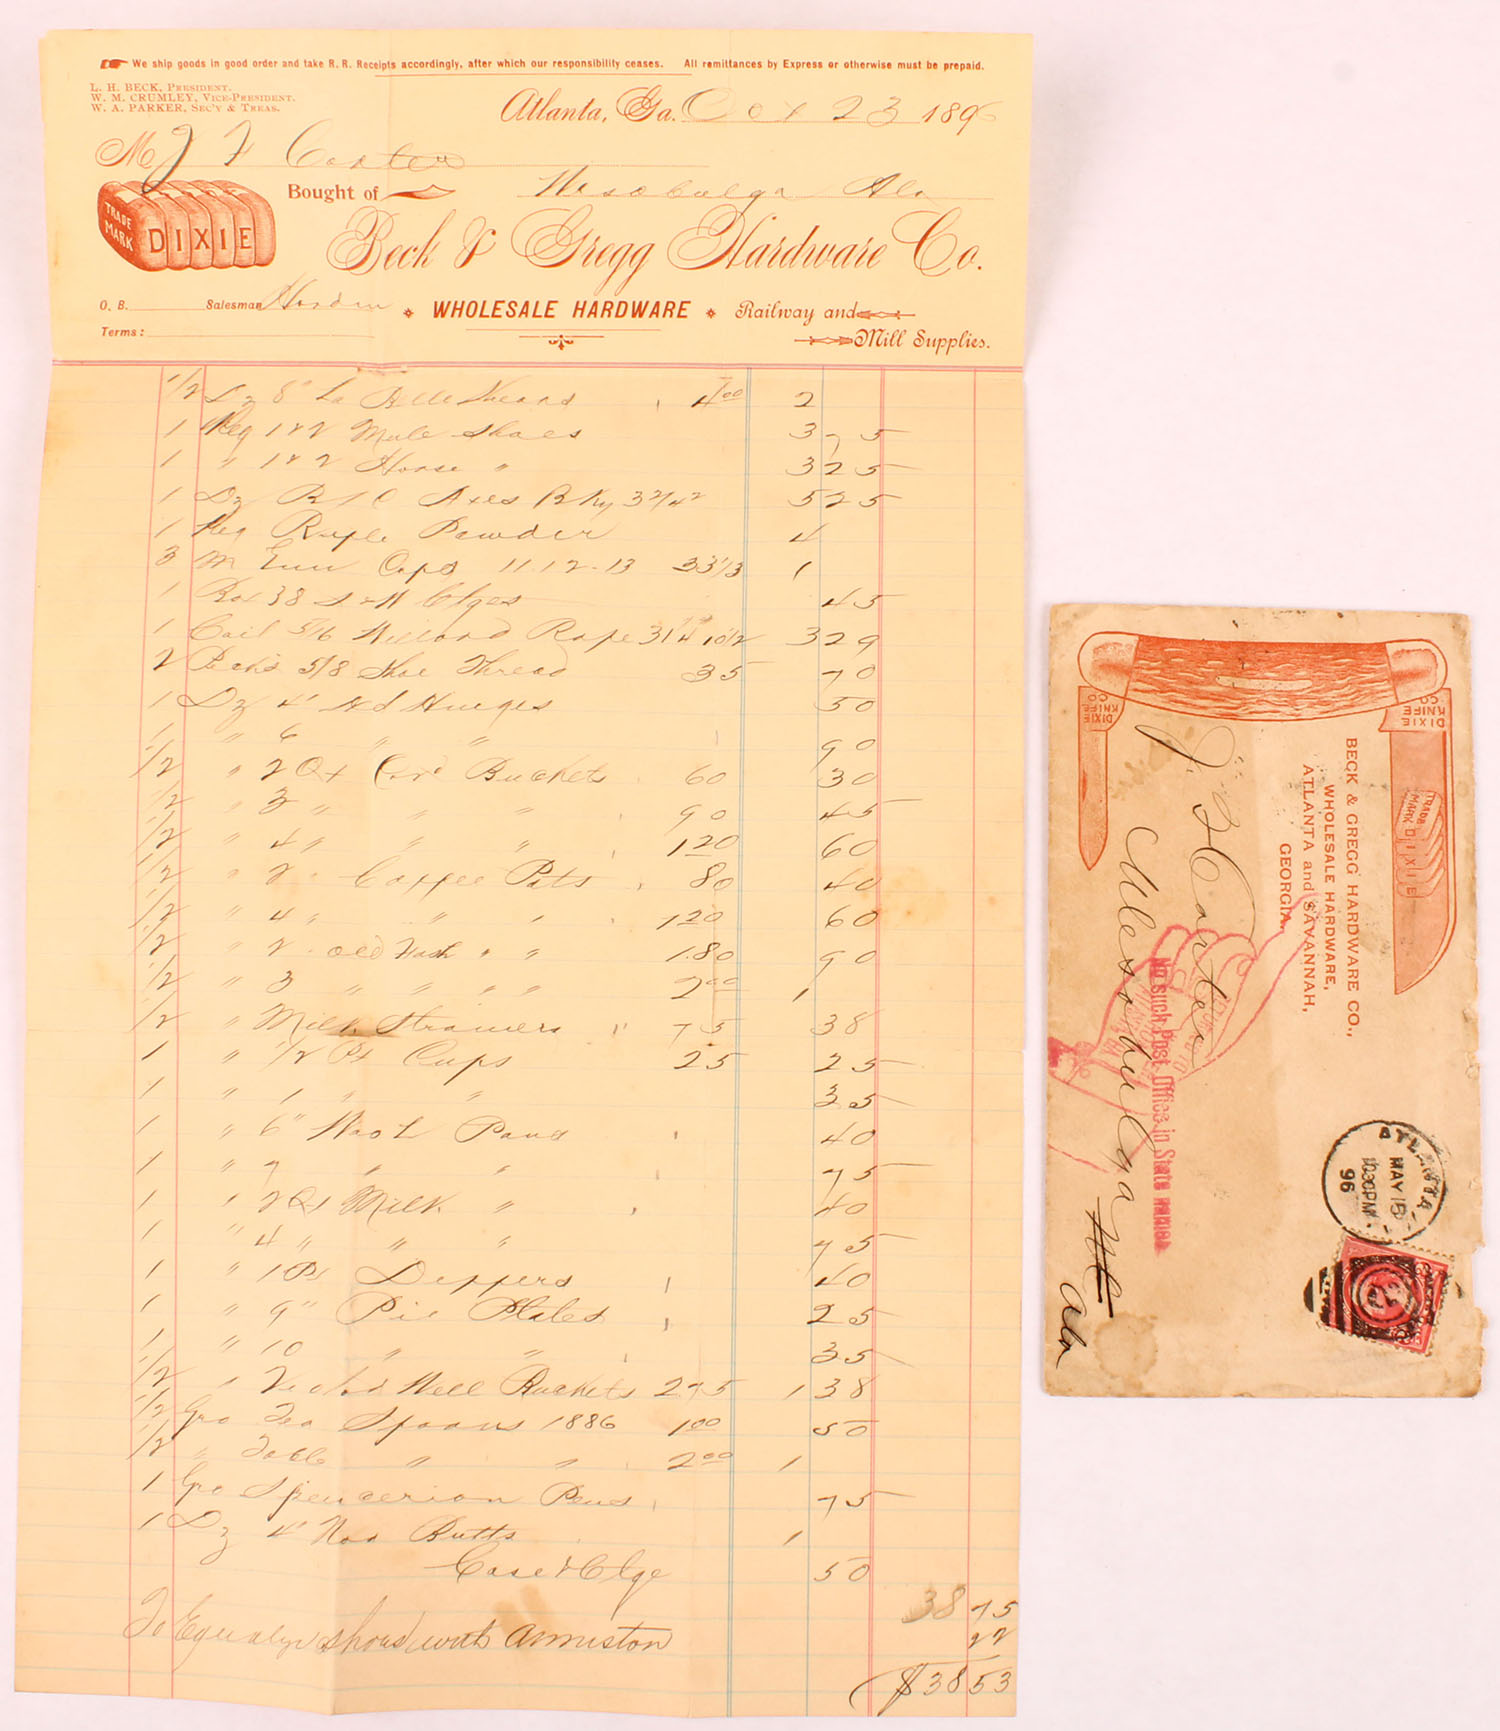 We ship goods in good order and take R. R. Receipts accordingly, after which our responsibility ceases. All remittances by Express or otherwise must be prepaid.
L. H. BECK, PRESIDENT.
W. M. CRUMLEY, VICE-PRESIDENT.
W. A. PARKER, SEC'Y & TREAS.
Atlanta, Ga. Oct 23 1896
M J F Carter
Bought of
Ala
TRADE MARK DIXIE
Beck & Gregg Hardware Co.
O. B. Salesman
WHOLESALE HARDWARE Railway and
Terms: Mill Supplies.
1/2 Dz 8" La Belle 4 00 2
1 Keg 1 & 2 Mule Shoes 3 75
1 " 1 & 2 Horse " 3 25
1 Dz Axes 5 25
1 Keg Rifle Powder 4
3 M Caps 11-12-13 33 1/3 1
1 Box 38 S & W Ctges 45
1 Coil 5/16 Rope 31# 10 1/2 3 29
2 5/8 Shoe Thread 35 70
1 Dz 4" Hinges 50
1 " 6 " " 90
1/2 " 2 Qt Cov'd Buckets 60 30
1/2 " 3 " " " 90 45
1/2 " 4 " " " 1 20 60
1/2 " 2 " Coffee Pots 80 40
1/2 " 4 " " " 1 20 60
1/2 " 2 " " " 1.80 90
1/2 " 3 " " " " 2 00 1
1/2 " Milk Strainers " 75 38
1 " 1/2 Pt Cups 25 25
1 " 1 " " 35
1 " 6" Wash Pans 40
1 " 7 " " 75
1 " 2 Qt Milk " 40
1 " 4 " " " 75
1 " 1 Pt Dippers 40
1 " 9" Pie Plates 25
1 " 10 " " 35
1/2 " Well Buckets 275 1 38
1/2 Gro Tea Spoons 1886 1 00 50
1/2 " Table " " 2 00 1
1 Gro Spencerian Pens 75
1 Dz 4" Butts 1
Case & Ctge 50
38 75
To Equalize with Anniston 22
$38 53
DIXIE KNIFE CO
DIXIE KNIFE CO
TRADE MARK DIXIE
BECK & GREGG HARDWARE CO.,
WHOLESALE HARDWARE,
ATLANTA and SAVANNAH,
GEORGIA.
J. F Carter
No such Post Office in State named
Ala
ATLANTA
MAY 18
1030PM
96